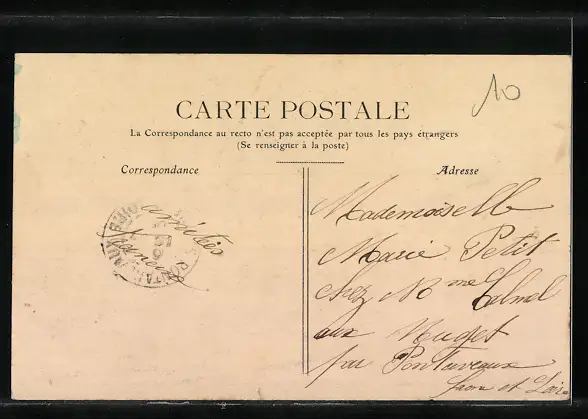 10
CARTE POSTALE
La Correspondance au recto n'est pas acceptée par tous les pays étrangers
(Se renseigner à la poste)
Correspondance
Adresse
amitiés
Mademoiselle
Marie Petit
chez Mme
aux Muguet
par Pontaveaux
Saon et Loire